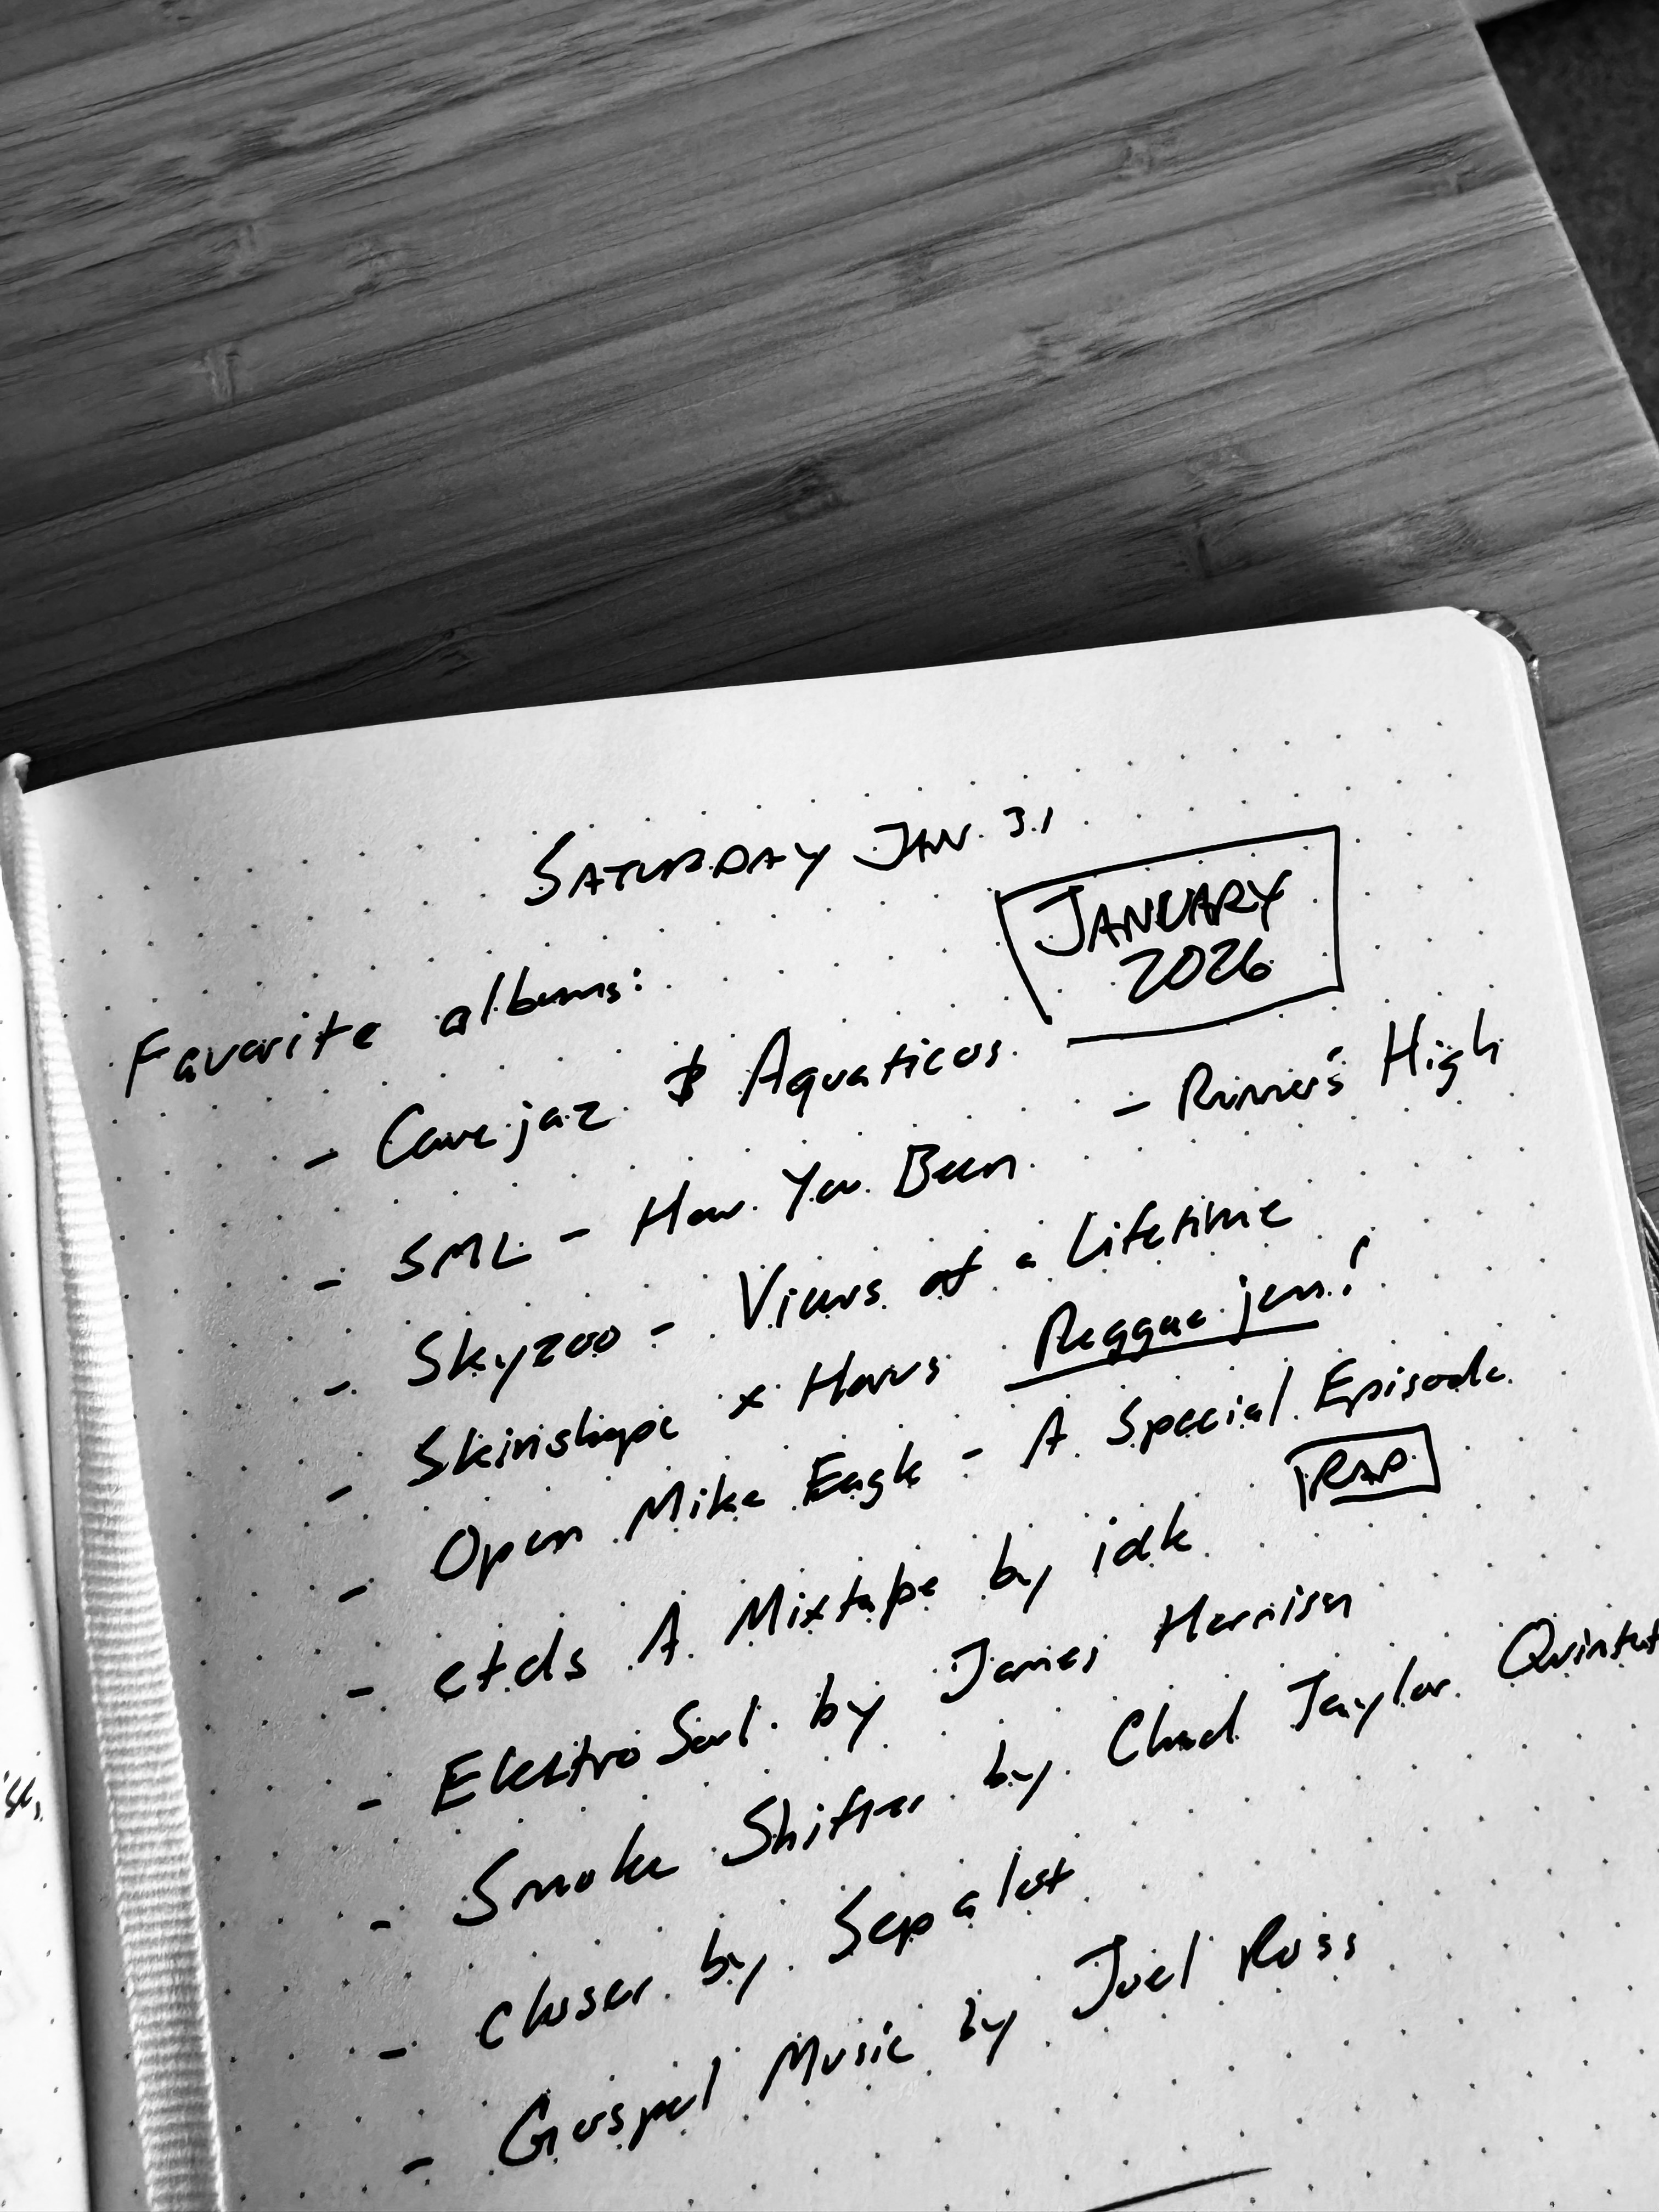 SATURDAY JAN. 31
JANUARY
2026
Favorite albums:
- Cavejaz & Aquaticos - Runner's High
- SML - How You Been
- Skyzoo - Views of a Lifetime
- Skinshape x Horus Reggae jem!
- Open Mike Eagle - A Special Episode
- etds A Mixtape by idk RAP
- Elektro Soul by James Harrison
- Smoke Shifter by Chad Taylor Quintet
- closer by Sepalot
- Gospel Music by Joel Ross